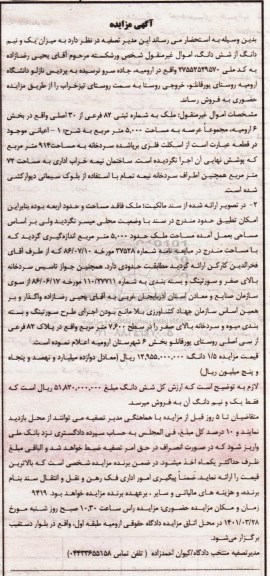 آگهی مزایده
بدین وسیله به استحضار می رساند این مدیر تصفیه در نظر دارد به میزان یک و نیم
دانگ از شش دانگ، اموال غیر منقول شخص ورشکسته مرحوم آقای یحیی رضازاده
به کد ملی ۲۷۵۵۲۵۲۹۵۷۰ واقع در ارومیه، جاده سرو نرسیده به پردیس نازلو دانشگاه
ارومیه روستای پورقانلو، خروجی روستا به سمت روستای تیزخراب را از طریق مزایده
حضوری به فروش رساند.
مشخصات اموال غیر منقول: ملک به شماره ثبتی ۸۲ فرعی از ۳۰ اصلی واقع در بخش
۶ ارومیه، مجموعاً عرصه به مساحت ۵.۰۰۰ متر مربع به شرح: ۱- اعیانی موجود
در قطعه عبارت است از اسکلت فلزی برپاشده سردخانه به مساحت ۹۱۴ متر مربع
که پوشش نهایی آن اجرا نگردیده است. ساختمان نیمه خراب اداری به مساحت ۷۲
متر مربع همچنین اطراف سردخانه نیمه تمام با استفاده از بلوک سیمانی دیوارکشی
شده است.
۲- در تصویر ارائه شده از سند مالکیت: ملک فاقد مساحت و حدود اربعه بوده بنابراین
امکان تطبیق حدود مندرج در سند با وضعیت محلی میسر نگردید ولی بر اساس
مساحی بعمل آمده مساحت ملک حدود ۵.۰۰۰ متر مربع اندازه‌گیری گردید که
با مساحت مندرج در مبایعه نامه شماره ۳۷۵۲۸ مورخه ۸۶/۰۷/۱۰ که از طرف آقای
فخرالدین کارکن ارائه گردید مطابقت حدودی دارد. همچنین جواز تاسیس سردخانه
بالای صفر و سورتینگ و بسته بندی به شماره ۱۱۰/۲۷۷۱۱ مورخه ۸۶/۰۶/۱۷ از سوی
سازمان صنایع و معادن استان آذربایجان غربی به آقای یحیی رضازاده واگذار و بر
همین اساس سازمان جهاد کشاورزی بلا مانع بودن اجرای طرح سورتینگ و بسته
بندی میوه و سردخانه بالای صفر را در سطح ۷.۶۰۰ متر مربع واقع در پلاک ۸۲ فرعی
از سی اصلی روستای پورقانلو بخش ۶ شهرستان ارومیه اعلام نموده است.
قیمت مزایده ۱/۵ دانگ ۱۲.۹۵۵.۰۰۰.۰۰۰ ریال (معادل دوازده میلیارد و نهصد و پنجاه
و پنج میلیون ریال)
لازم به توضیح است که ارزش کل شش دانگ مبلغ ۵۱.۸۲۰.۰۰۰.۰۰۰ ریال است که
فقط یک و نیم دانگ آن به فروش میرسد.
متقاضیان تا ۵ روز قبل از مزایده با هماهنگی مدیر تصفیه می توانند از محل بازدید
نمایند و ۱۰ درصد کل مبلغ، فی المجلس به حساب سپرده دادگستری نزد بانک ملی
واریز شود که در صورت انصراف در حق امر تصفیه ضبط خواهد شد و الباقی مبلغ
ظرف حداکثر یکماه اخذ میشود. در ضمن برنده مزایده شخصی است که بالاترین
قیمت را ارائه نماید. ضمناً پیگیری امور اداری فک رهن و نقل و انتقال سند بنام
برنده، و هزینه های مالیاتی و سایر، برعهده برنده مزایده خواهد بود. ۹۴۱۹
زمان و مکان مزایده حضوری: مزایده راس ساعت ۱۰.۳۰ صبح روز شنبه مورخ
۱۴۰۱/۰۳/۲۸ در محل اتاق مزایده دادگاه حقوقی ارومیه طبقه اول، واقع در بلوار دستغیب
برگزار می‌شود.
مدیر تصفیه منتخب دادگاه/کیوان احمدزاده ( تلفن تماس ۰۴۴۳۳۶۵۵۱۵۸)